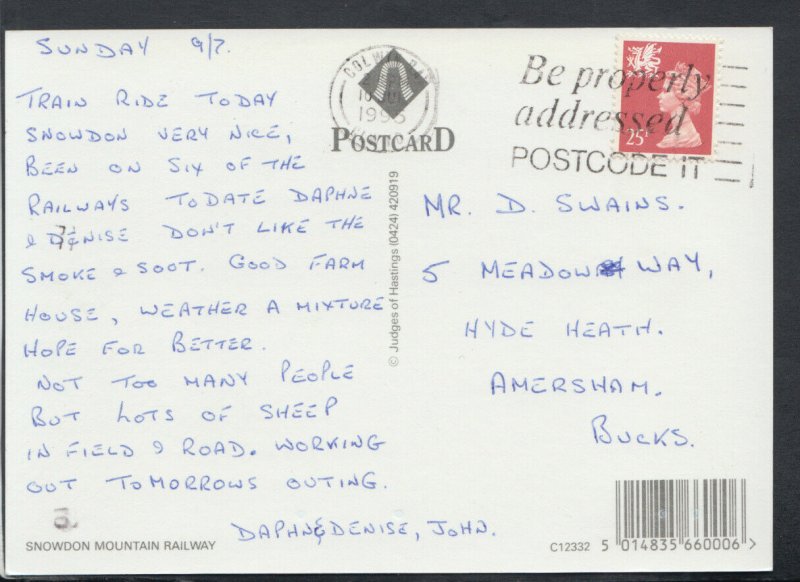 SUNDAY 9/7.
TRAIN RIDE TODAY
SNOWDON VERY NICE,
BEEN ON SIX OF THE
RAILWAYS TODATE DAPHNE
& DENISE DON'T LIKE THE
SMOKE & SOOT. GOOD FARM
HOUSE, WEATHER A MIXTURE
HOPE FOR BETTER.
NOT TOO MANY PEOPLE
BUT LOTS OF SHEEP
IN FIELD & ROAD. WORKING
OUT TOMORROWS OUTING.
DAPHN&DENISE, JOHN.
SNOWDON MOUNTAIN RAILWAY
POSTCARD
© Judges of Hastings (0424) 420919
1995
Be properly
addressed
POSTCODE IT
25
MR. D. SWAINS.
5 MEADOW WAY,
HYDE HEATH.
AMERSHAM.
BUCKS.
C12332 5 014835 660006 >